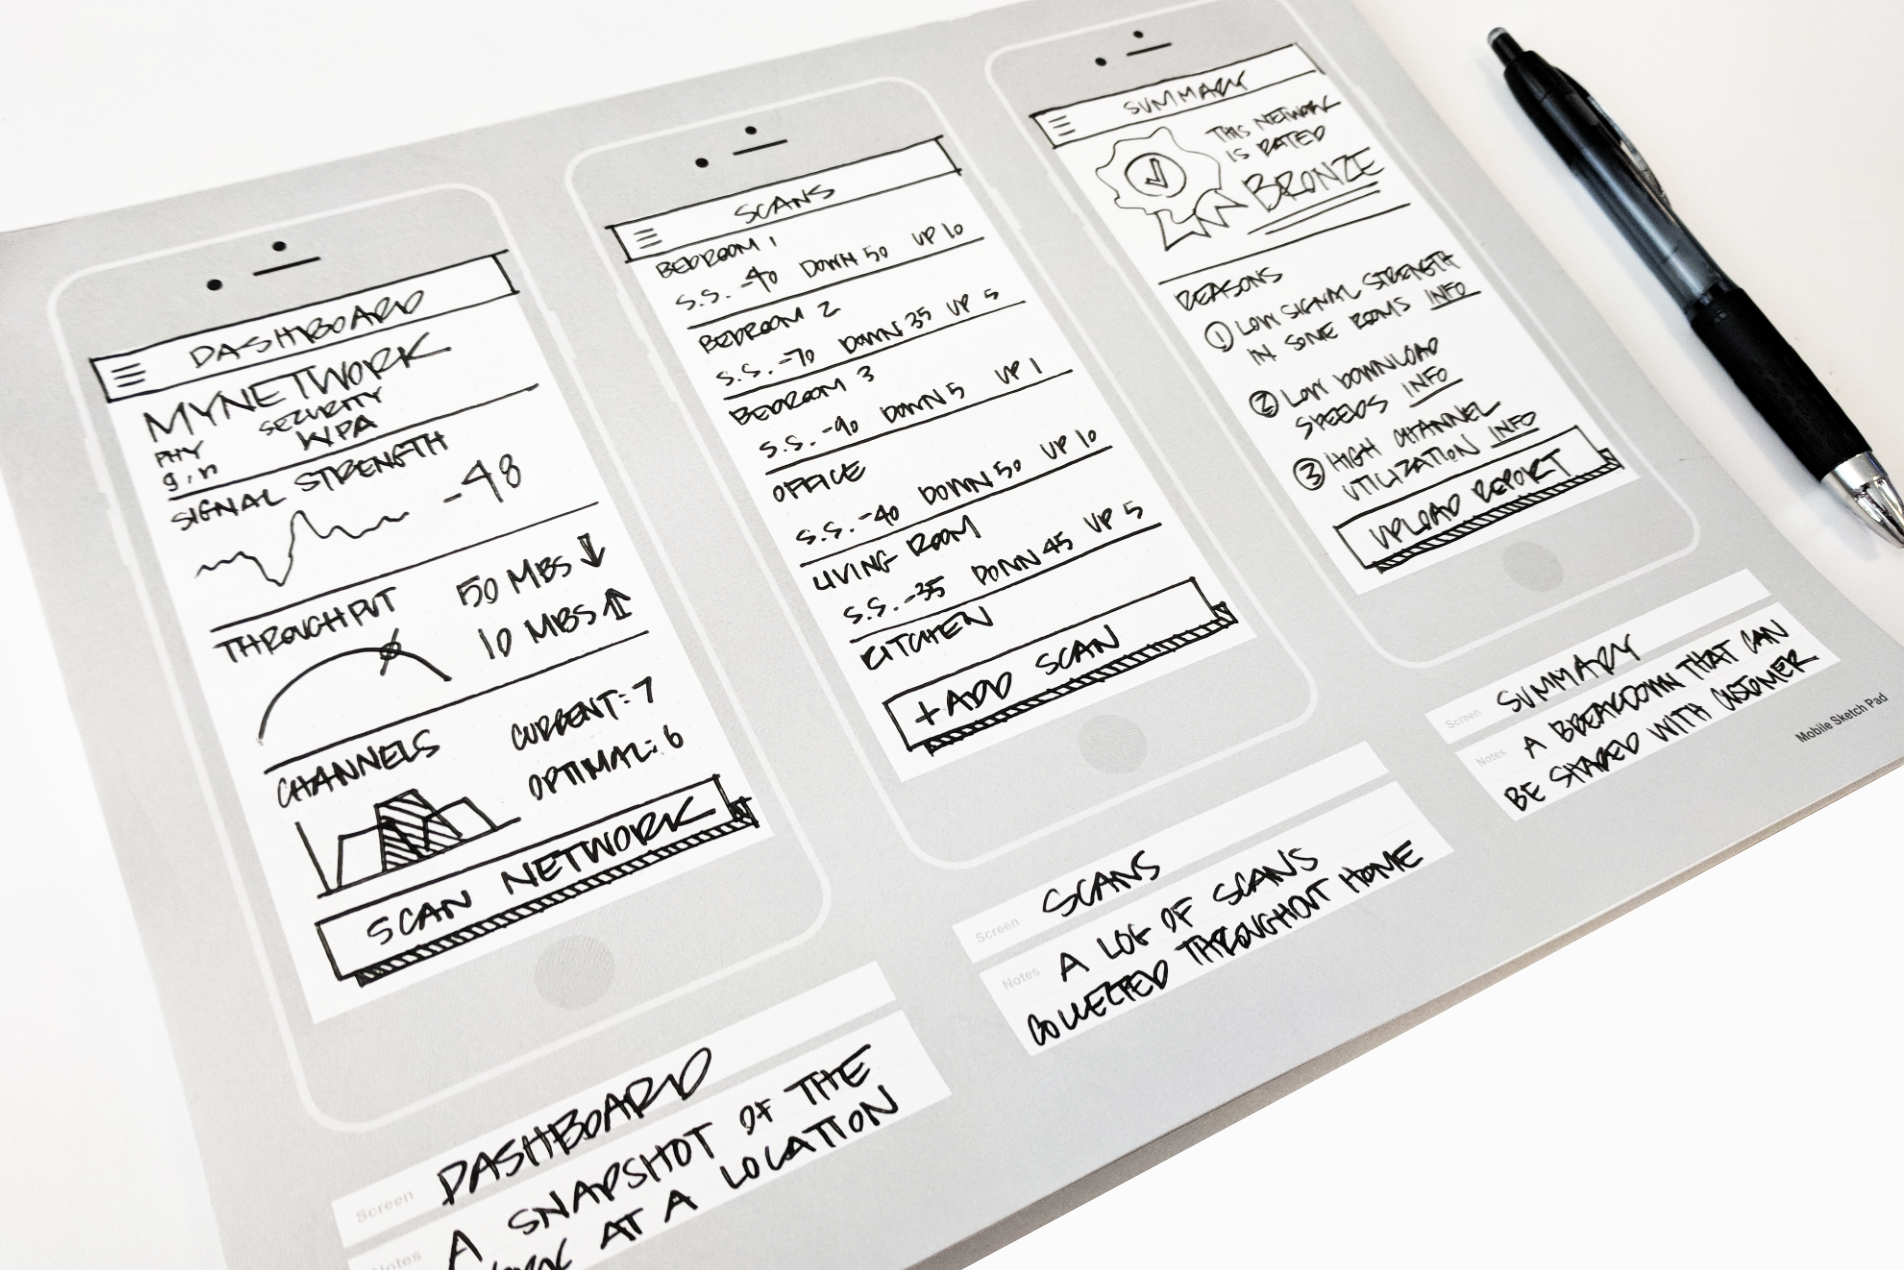 DASHBOARD
MYNETWORK
PHY SECURITY
g,n WPA
SIGNAL STRENGTH
-48
THROUGHPUT
50 MBS ↓
10 MBS ↑
CHANNELS
CURRENT: 7
OPTIMAL: 6
SCAN NETWORK
Screen DASHBOARD
Notes A SNAPSHOT OF THE
AT A LOCATION
SCANS
BEDROOM 1
S.S. -40 DOWN 50 UP 10
BEDROOM 2
S.S. -70 DOWN 35 UP 5
BEDROOM 3
S.S. -90 DOWN 5 UP 1
OFFICE
S.S. -40 DOWN 50 UP 10
LIVING ROOM
S.S. -35 DOWN 45 UP 5
KITCHEN
+ ADD SCAN
Screen SCANS
Notes A LOG OF SCANS
COLLECTED THROUGHOUT HOME
SUMMARY
THIS NETWORK
IS RATED
BRONZE
REASONS
1 LOW SIGNAL STRENGTH
IN SOME ROOMS INFO
2 LOW DOWNLOAD
SPEEDS INFO
3 HIGH CHANNEL
UTILIZATION INFO
UPLOAD REPORT
Screen SUMMARY
Notes A BREAKDOWN THAT CAN
BE SHARED WITH CUSTOMER
Mobile Sketch Pad